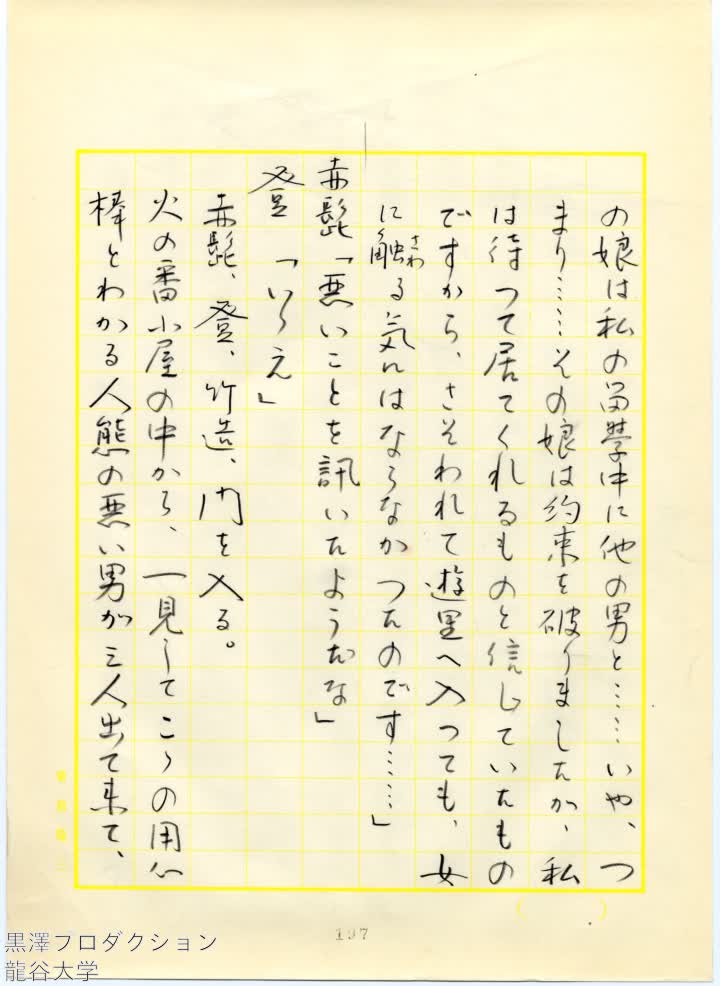 の娘は私の留学中に他の男と……いや、つ
まり……その娘は約束を破りましたが、私
は待つて居てくれるものと信じていたもの
ですから、さそわれて遊里へ入つても、女
に触る気にはならなかつたのです……」
さわ
赤髭「悪いことを訊いたようだな」
登　「いゝえ」
赤髭、登、竹造、門を入る。
火の番小屋の中から、一見してこゝの用心
棒とわかる人態の悪い男が三人出て来て、
197
黒澤プロダクション
龍谷大学